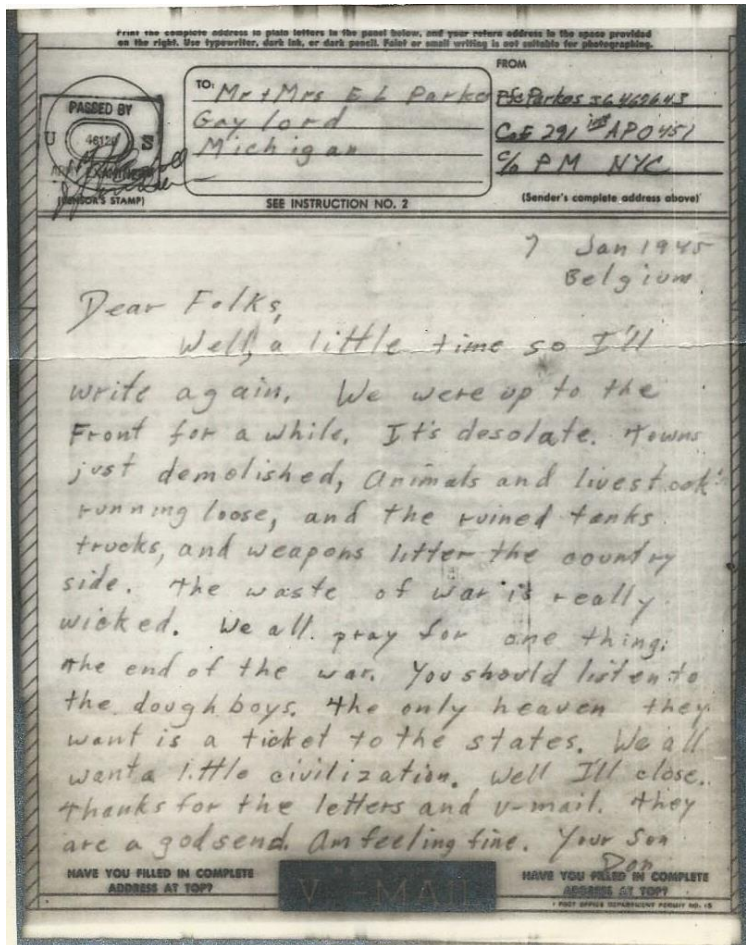 Print the complete address in plain letters in the panel below, and your return address in the space provided
on the right. Use typewriter, dark ink, or dark pencil. Faint or small writing is not suitable for photographing.
FROM
TO:
Mr + Mrs E L Parko
Gaylord
Michigan
Pfc Parkos 36469643
Co E 291 inf APO 451
c/o PM NYC
PASSED BY
U S
46120
ARMY EXAMINER
(CENSOR'S STAMP)
SEE INSTRUCTION NO. 2
(Sender's complete address above)
7 Jan 1945
Belgium
Dear Folks,
Well, a little time so I'll
write again. We were up to the
Front for a while. It's desolate. Towns
just demolished, animals and livestock
running loose, and the ruined tanks
trucks, and weapons litter the country
side. The waste of war is really
wicked. We all pray for one thing:
the end of the war. You should listen to
the doughboys. The only heaven they
want is a ticket to the states. We all
want a little civilization. Well I'll close.
Thanks for the letters and v-mail. They
are a godsend. Am feeling fine. Your Son
Don
HAVE YOU FILLED IN COMPLETE
ADDRESS AT TOP?
V-MAIL
HAVE YOU FILLED IN COMPLETE
ADDRESS AT TOP?
POST OFFICE DEPARTMENT PERMIT NO. 15